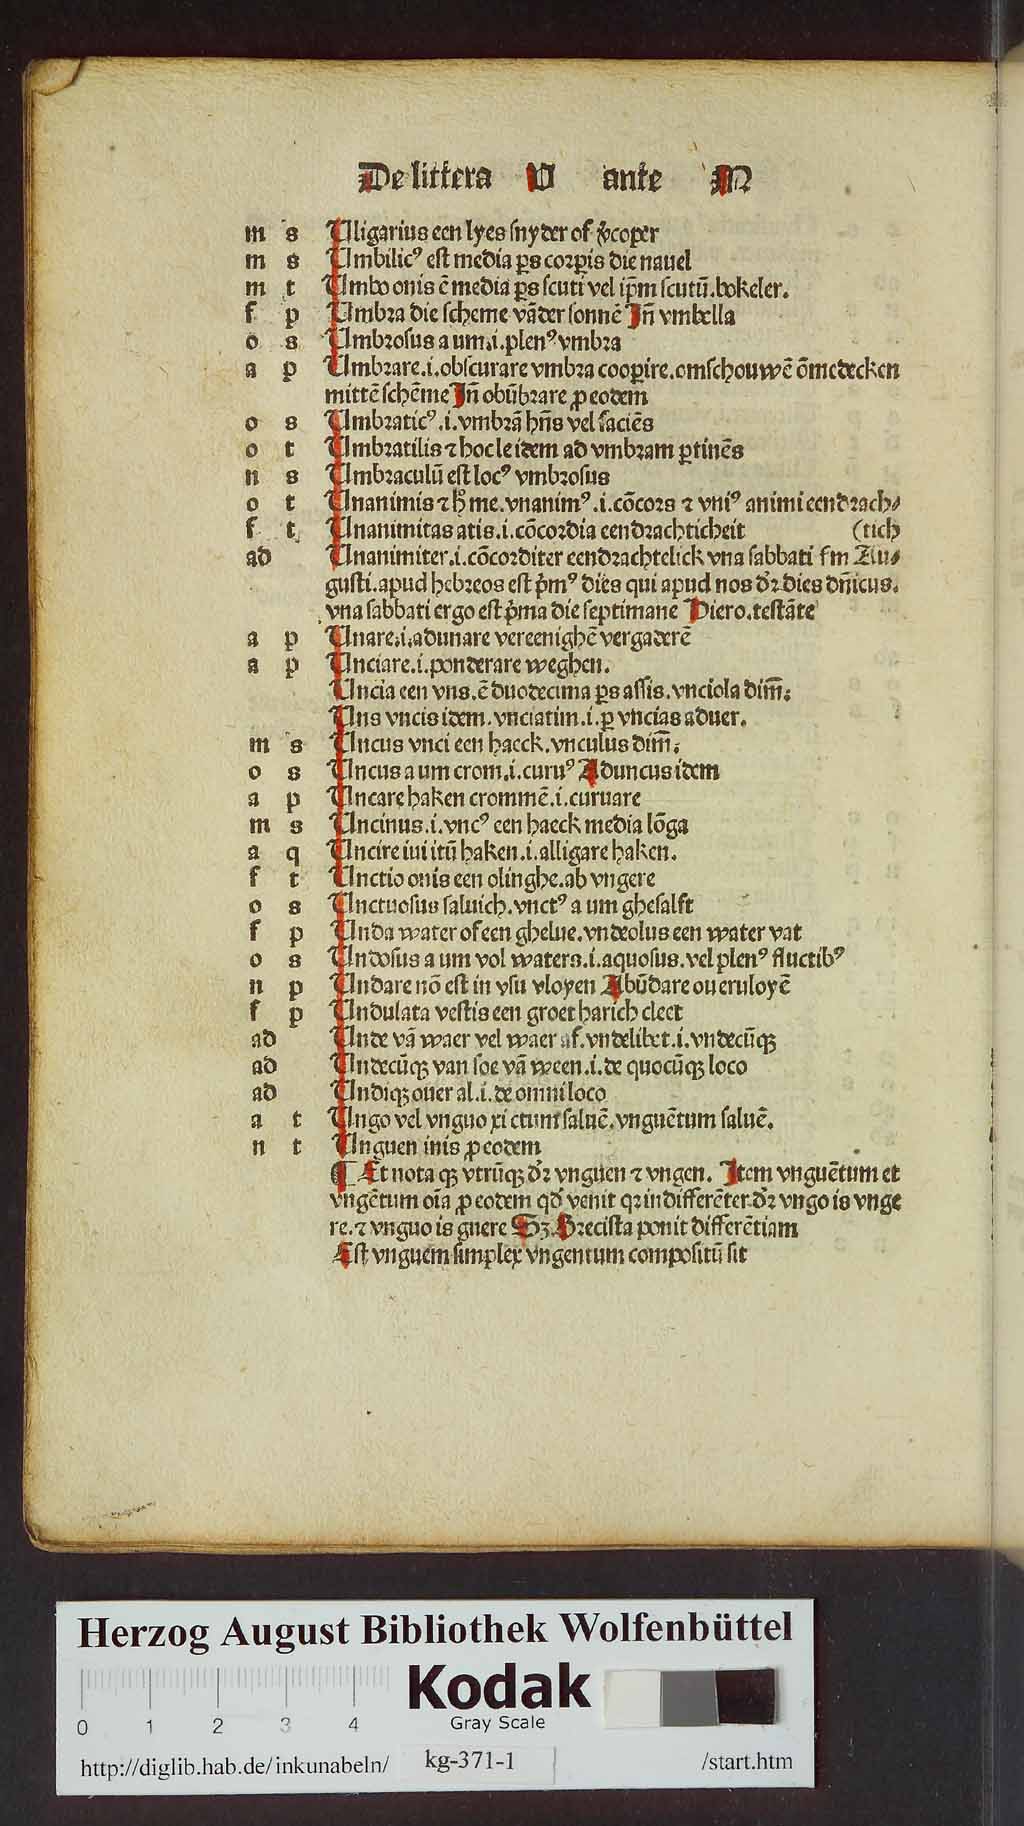 De littera U ante M
m s Uligarius een lyes snyder of ꝟcoper
m s Umbilicꝰ est media ꝑs corꝑis die nauel
m t Umbo onis ē media ꝑs scuti vel ip̄m scutū.bokeler.
f p Umbra die scheme vāder sonnē Jn̄ vmbella
o s Umbrosus a um.i.plenꝰ vmbra
a p Umbrare.i.obscurare vmbra cooꝑire.omschouwē ōmedecken
mittē schēme Jn̄ obūbrare ꝓ eodem
o s Umbraticꝰ.i.vmbrā hn̄s vel faciēs
o t Umbratilis ⁊ hoc le idem ad vmbram ꝑtinēs
n s Umbraculū est locꝰ vmbrosus
o t Unanimis ⁊ h̄ me.vnanimꝰ.i.cōcors ⁊ vniꝰ animi eendrach⸗
f t Unanimitas atis.i.cōcordia eendrachticheit (tich
ad Unanimiter.i.cōcorditer eendrachtelick vna sabbati fm Au⸗
gusti.apud hebreos est p̄mꝰ dies qui apud nos dr̄ dies dn̄icus.
vna sabbati ergo est p̄ma die septimane Hiero.testāte
a p Unare.i.adunare vereenighē vergaderē
a p Unciare.i.ponderare weghen.
Uncia een vns.ē duodecima ꝑs assis.vnciola dim̄.
Uns vncis idem.vnciatim.i.ꝑ vncias aduer.
m s Uncus vnci een haeck.vnculus dim̄.
o s Uncus a um crom.i.curuꝰ Aduncus idem
a p Uncare haken crommē.i.curuare
m s Uncinus.i.vncꝰ een haeck media lōga
a q Uncire iui itū haken.i.alligare haken.
f t Unctio onis een olinghe.ab vngere
o s Unctuosus saluich.vnctꝰ a um ghesalft
f p Unda water of een ghelue.vndeolus een water vat
o s Undosus a um vol waters.i.aquosus.vel plenꝰ fluctibꝰ
n p Undare nō est in vsu vloyen Abūdare oueruloyē
f p Undulata vestis een groet harich cleet
ad Unde vā waer vel waer af.vndelibet.i.vndecūqꝫ
ad Undecūqꝫ van soe vā ween.i.de quocūqꝫ loco
ad Undiqꝫ ouer al.i.de omni loco
a t Ungo vel vnguo xi ctum saluē.vnguētum saluē.
n t Unguen inis ꝓ eodem
¶ Et nota qꝫ vtrūqꝫ dr̄ vnguen ⁊ vngen. Jtem vnguētum et
vngētum oīa ꝓ eodem qd̄ venit qꝛ indifferēter dr̄ vngo is vnge
re.⁊ vnguo is guere Sꝫ Brecista ponit differētiam
Est vnguem simplex vngentum compositū sit
Herzog August Bibliothek Wolfenbüttel
Kodak
Gray Scale
0 1 2 3 4
http://diglib.hab.de/inkunabeln/ kg-371-1 /start.htm